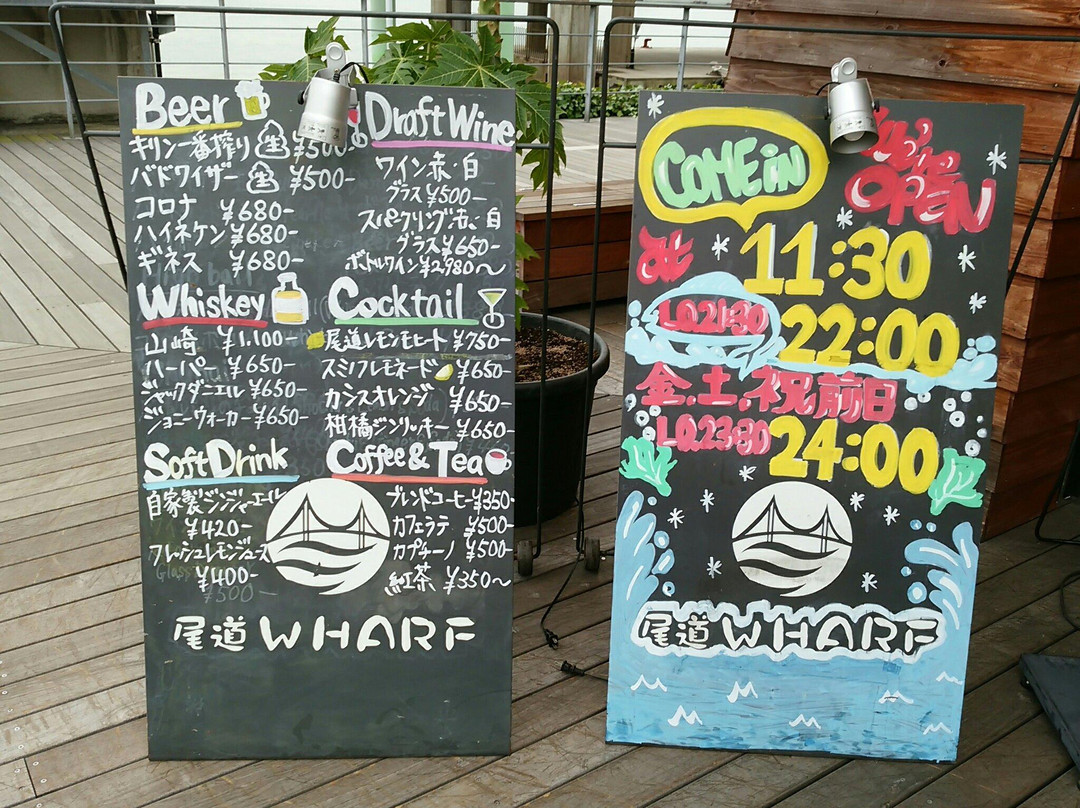 Beer
キリン一番搾り 生 ¥500-
バドワイザー 生 ¥500-
コロナ ¥680-
ハイネケン ¥680-
ギネス ¥680-
Draft Wine
ワイン赤・白
グラス ¥500-
スパークリング赤・白
グラス ¥650-
ボトルワイン ¥2,980〜
Whiskey
山崎 ¥1,100-
ハーパー ¥650-
ジャックダニエル ¥650-
ジョニーウォーカー ¥650-
Cocktail
尾道レモンモヒート ¥750-
スミノフレモネード ¥650-
カシスオレンジ ¥650-
柑橘ジンリッキー ¥650-
Soft Drink
自家製ジンジャーエール
¥420-
フレッシュレモンジュース
¥400-
Coffee & Tea
ブレンドコーヒー ¥350-
カフェラテ ¥500-
カプチーノ ¥500-
紅茶 ¥350〜
尾道 WHARF
COME iN
We're
OPEN
at
11:30
L.O.21:30
22:00
金.土.祝前日
L.O.23:30
24:00
尾道 WHARF